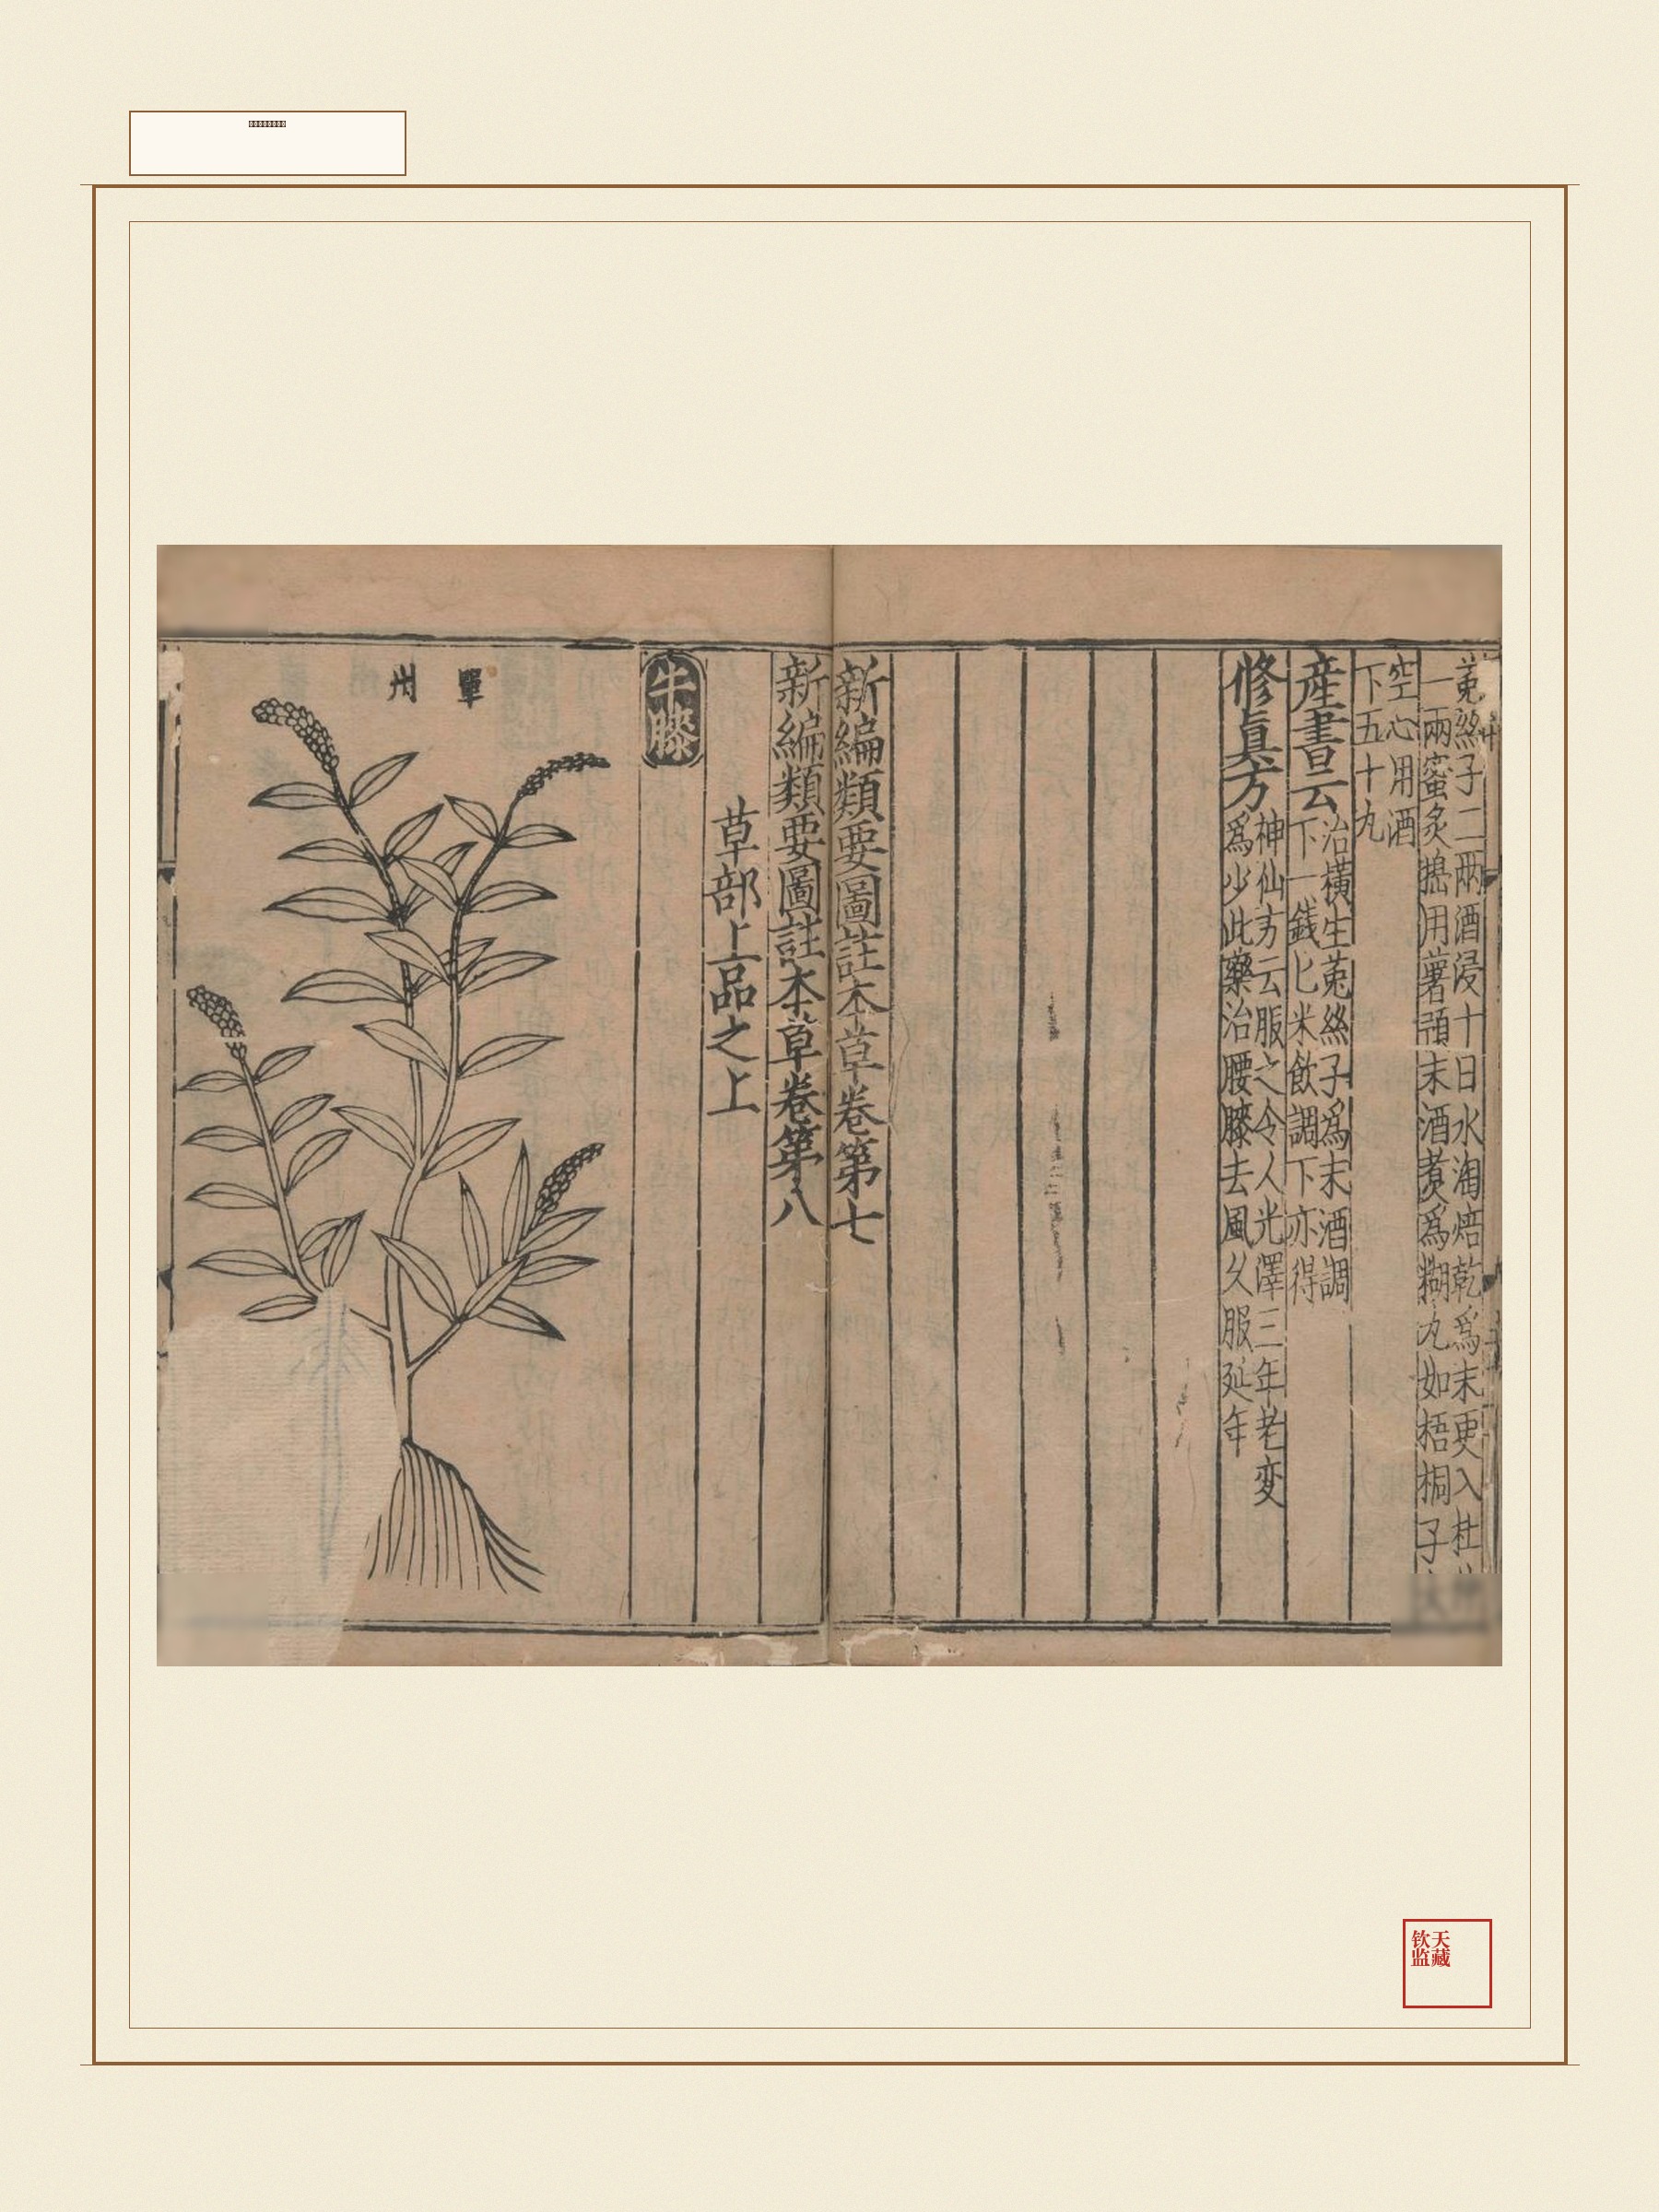 菟絲子二兩酒浸十日水淘焙乾爲末更入杜
一兩蜜炙搗用薯蕷末酒煮爲糊丸如梧桐子
空心用酒
下五十丸
産書云治橫生菟絲子爲末酒調
下一錢匕米飲調下亦得
修眞方神仙方云服之令人光澤三年老変
爲少此藥治腰膝去風久服延年
新編類要圖註本草卷第七
新編類要圖註本草卷第八
草部上品之上
牛膝
單州
钦天
监藏